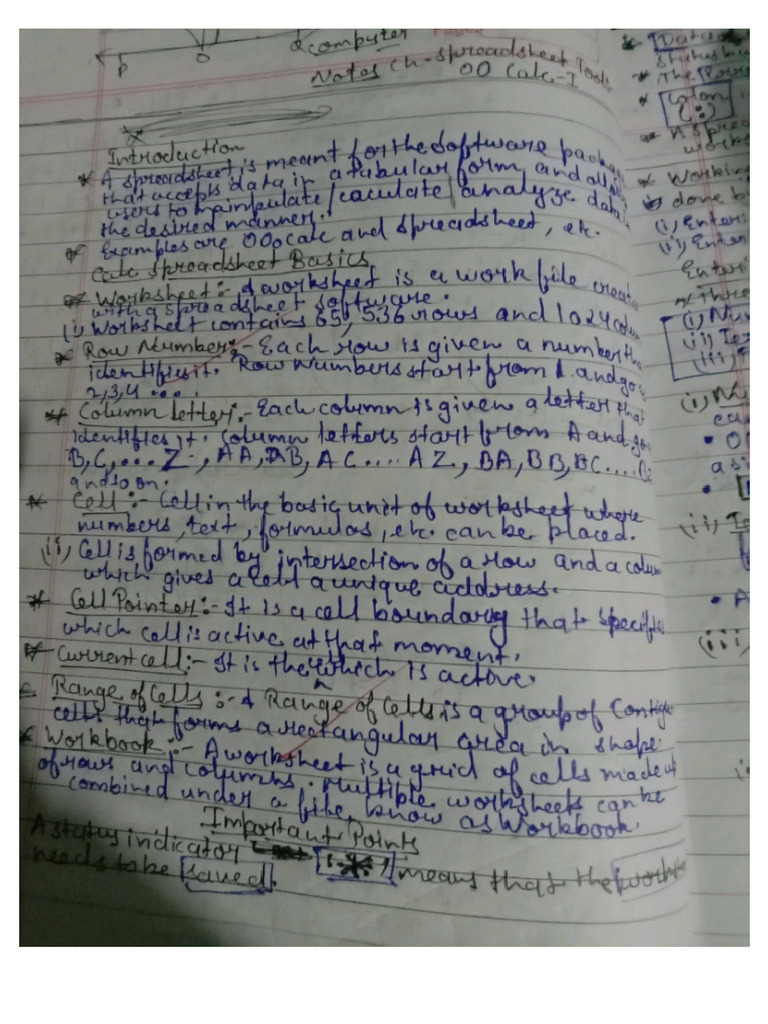 computer
P
O
Notes Ch-Spreadsheet Tools
OO Calc-I
Introduction
* A spreadsheet is meant for the software package
that accepts data in a tabular form, and allows
users to mainpulate/caculate/analyze data in
the desired manner.
* Examples are OOo Calc and Spreadsheet, etc.
Calc Spreadsheet Basics
* Worksheet:- A worksheet is a work file create
with a spreadsheet software.
(i) Worksheet contains 65,536 rows and 1024 colum
* Row Number:- Each row is given a number tha
identifies it. Row Numbers start from 1 and goes
2,3,4 ....
* Column letter:- Each column is given a letter that
identifies it. Column letters start from A and go
B, C, ... Z, AA, AB, AC.... AZ, BA, BB, BC....
and so on.
* Cell:- Cell in the basic unit of worksheet where
numbers, text, formulas, etc. can be placed.
(ii) Cell is formed by intersection of a row and a colum
which gives a cell a unique address.
* Cell Pointer:- It is a cell boundary that specifies
which cell is active at that moment.
* Current cell:- It is the which is active.
Range of Cells:- A Range of Cells is a group of Contig
cells that forms a rectangular area in shape.
* Workbook:- A worksheet is a grid of cells made up
of rows and columns. Multiple worksheets can be
combined under a file, know as Workbook.
Important Points
A status indicator means that the work
needs to be saved.
* The
* Colon
(:)
* A Sprea
works
* Working
done by
(i) Enteri
(ii) Enter
Enteri
(i) Num
(ii) Te
(iii)
(i) Nu
(ii) Te
• A
(iii)